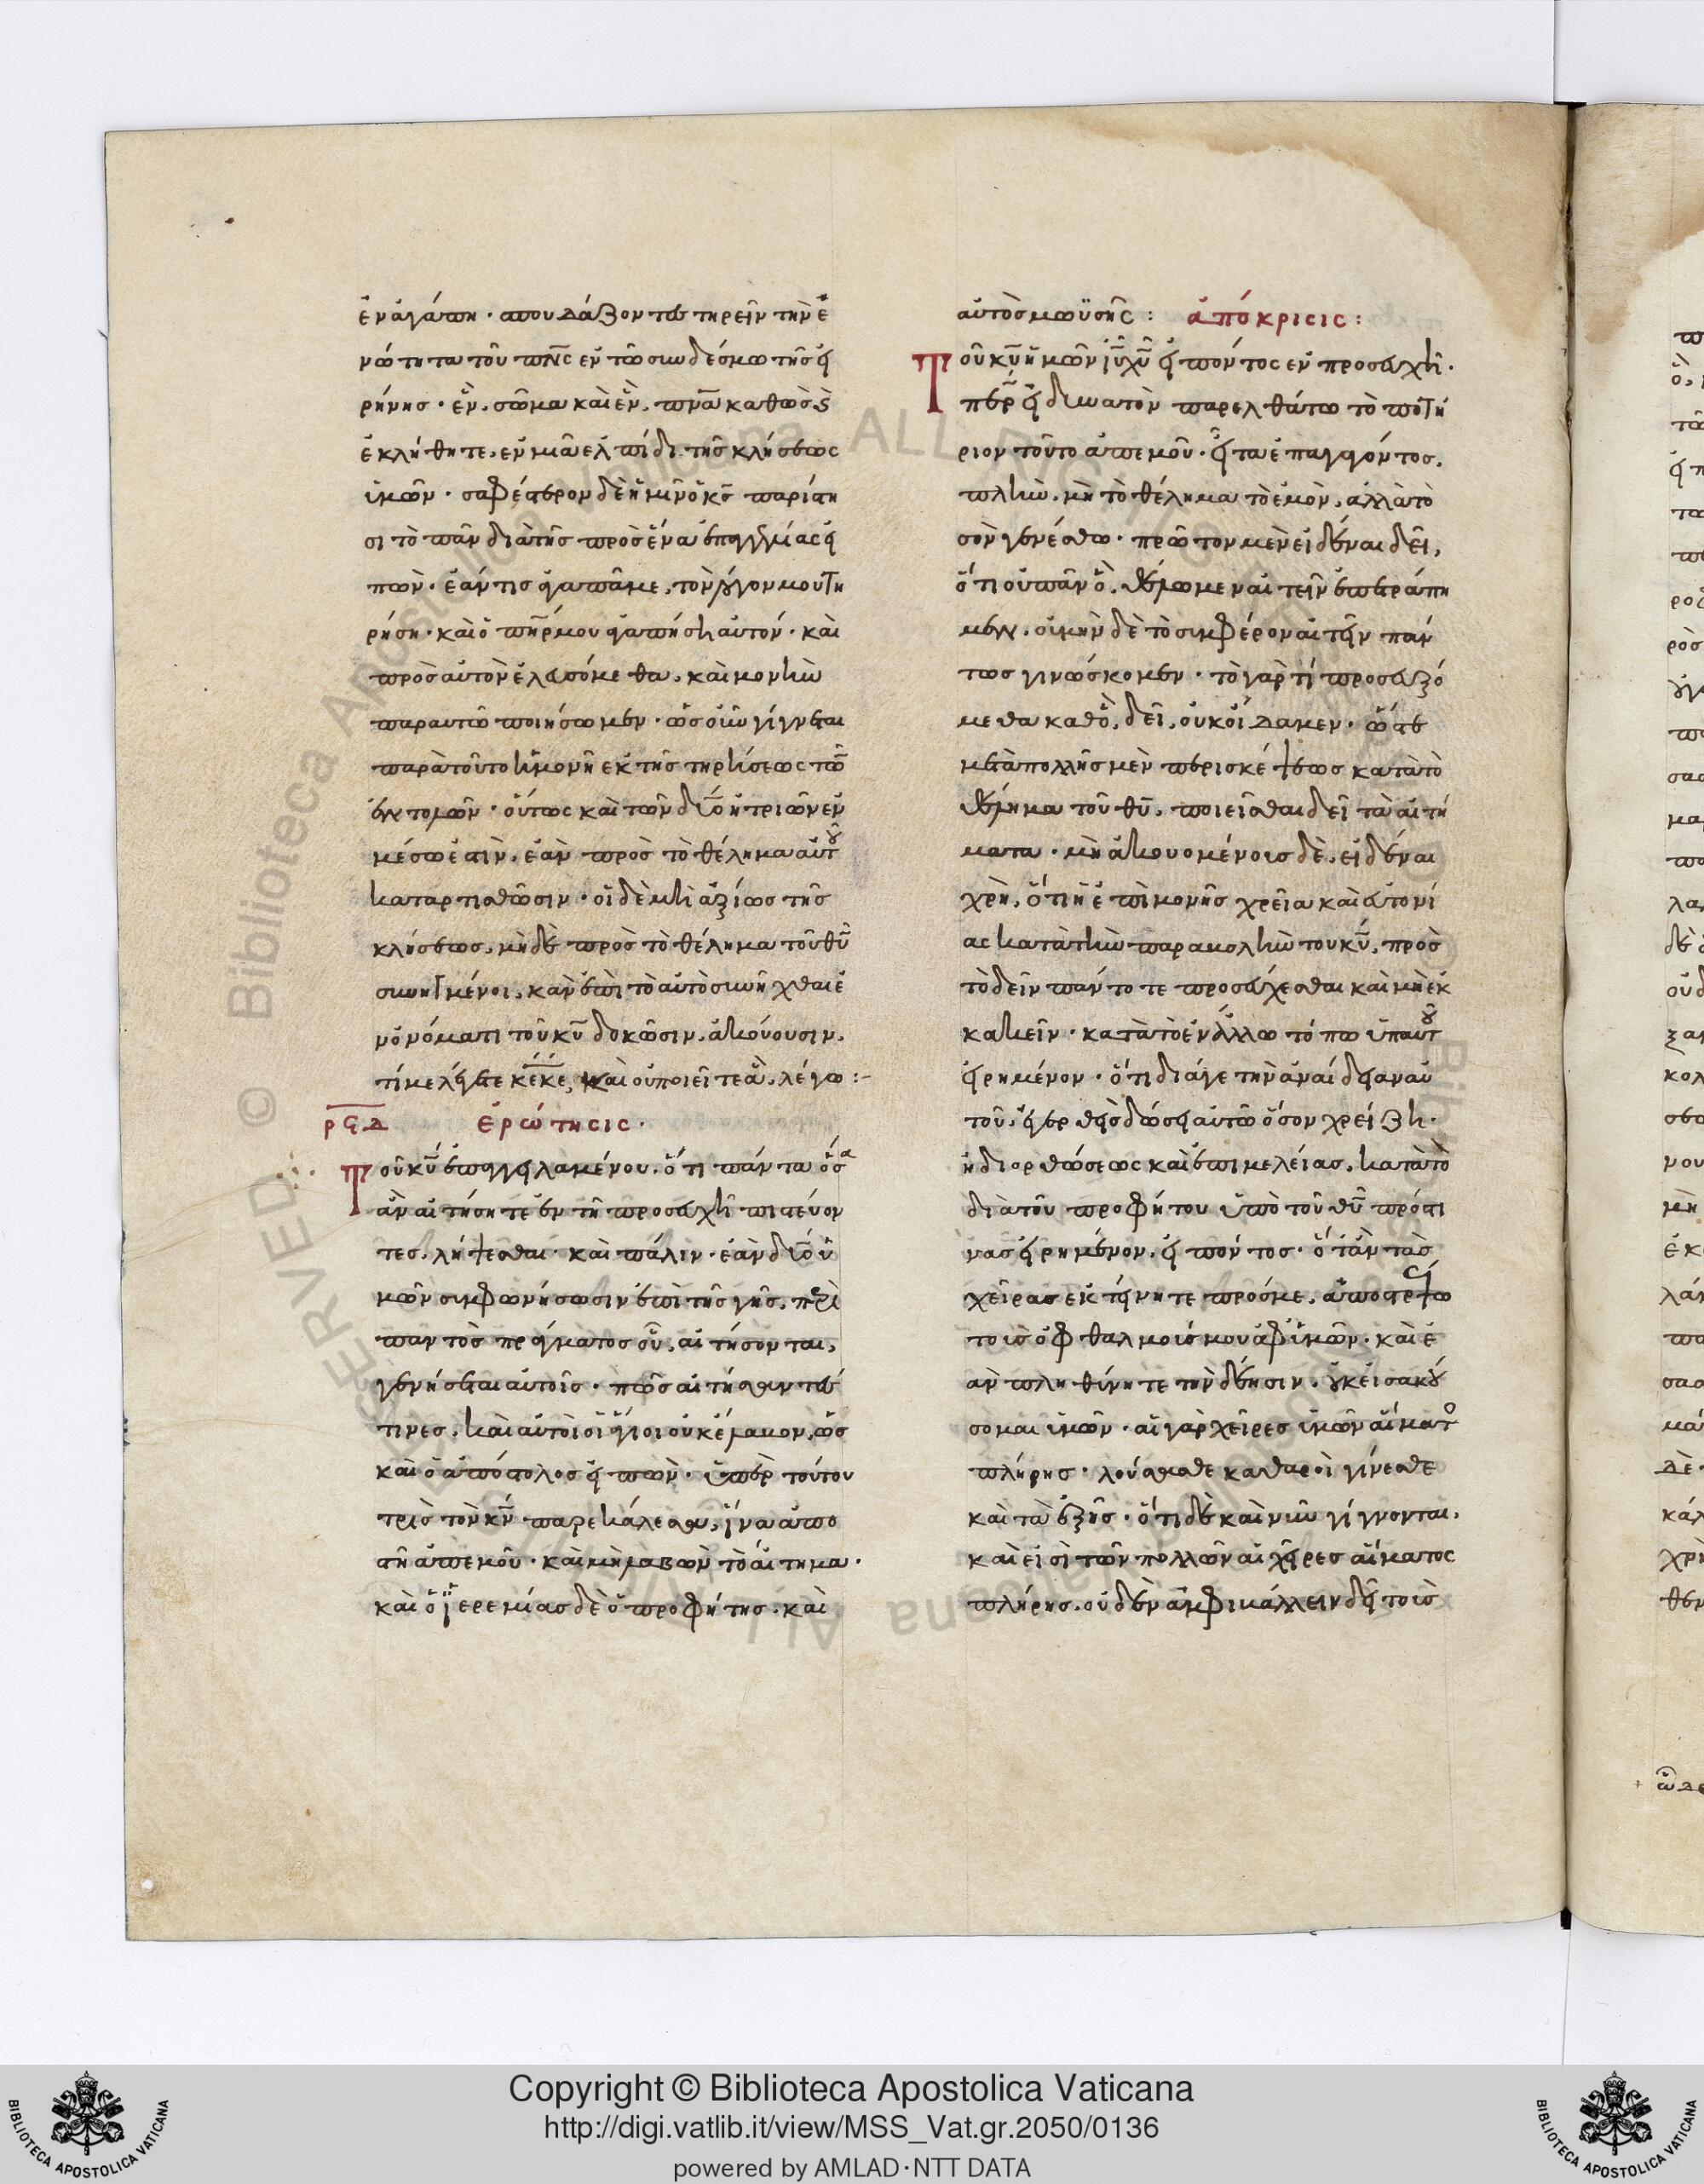 ἐν ἀγάπη · σπουδάζοντες τηρεῖν τὴν ἑ
νώτητα τοῦ πν̅ς ἐν τῶ συνδέσμω τῆς εἰ
ρήνης · ἓν σῶμα καὶ ἓν πν̅α καθὼς καὶ
ἐκλήθητε, ἐν μιᾶ ἐλπίδι τῆς κλήσεως
ὑμῶν · σαφέστερον δὲ ἡμῖν ὁ κ̅ς παρίστη
σι τὸ πᾶν διὰ τῆς πρὸς ἕνα ἐπαγγελίας εἰ
πὼν · ἐάν τις ἀγαπᾶ με, τὸν λόγον μου τη
ρήση · καὶ ὁ πη̅ρ μου ἀγαπήσει αὐτόν · καὶ
πρὸς αὐτὸν ἐλευσόμεθα, καὶ μονὴν
παραυτῶ ποιήσωμεν · ὡς οὖν γίγνεται
παρὰ τοῦτο ἡ μονὴ ἐκ τῆς τηρήσεως τῶν
ἐντολῶν · οὕτως καὶ τῶν δύο ἢ τριῶν ἐν
μέσω ἐστὶν, ἐὰν πρὸς τὸ θέλημα αὐτοῦ
καταρτισθῶσιν · οἱ δὲ μὴ ἀξίως τῆς
κλήσεως, μὴδὲ πρὸς τὸ θέλημα τοῦ θ̅υ
συνηγμένοι, κὰν ἐπὶ τὸ αὐτὸ συνῆχθαι ἐ
ν ὀνόματι τοῦ κ̅υ δοκῶσιν, ἀκούουσιν,
τί με λέγετε κ̅ε κ̅ε, καὶ οὐ ποιεῖτε ἃ λέγω :-
ρϟδ ἐρώτησις ·
Τοῦ κ̅υ ἐπαγγειλαμένου, ὅτι πάντα ὅσα
ἂν αἰτήσητε ἐν τῆ προσευχῆ πιστεύον
τες, λήψεσθαι · καὶ πάλιν · ἐὰν δύο ὑ
μῶν συμφωνήσωσιν ἐπὶ τῆς γῆς, περὶ
παντὸς πράγματος οὗ, αἰτήσονται,
γενήσεται αὐτοῖς · πῶς αἰτήσαντές
τινες, καὶ αὐτοὶ οἱ ἅγιοι οὐκ ἔλαβον, ὡς
καὶ ὁ ἀπόστολος εἰπὼν · ὑπὲρ τούτου
τρὶς τὸν κ̅ν παρεκάλεσα, ἵνα ἀπο
στῆ ἀπεμοῦ · καὶ μὴ λαβὼν τὸ αἴτημα ·
καὶ ὁ ϊερεμίας δὲ ὁ προφήτης · καὶ
αὐτὸς μωϋσῆς : ἀπόκρισις :
Τοῦ κ̅υ ἡμῶν ι̅υ χ̅υ εἰπόντος ἐν προσευχῆ ·
πε̅ρ εἰ δυνατὸν παρελθάτω τὸ ποτή
ριον τοῦτο ἀπεμοῦ · εἶτα ἐπαγαγόντος,
πλὴν, μὴ τὸ θέλημα τὸ ἐμὸν, ἀλλὰ τὸ
σὸν γενέσθω · πρῶτον μὲν εἰδέναι δεῖ,
ὅτι οὐ πᾶν ὃ θέλωμεν αἰτεῖν ἐπετράπη
μεν, οὐ μὴν δὲ τὸ συμφέρον αἰτεῖν πάν
τως γινώσκομεν · τὸ γὰρ τί προσευξό
μεθα καθὸ, δεῖ, οὐκ οἴδαμεν · ὥστε
μετὰ πολλῆς μὲν περισκέψεως κατὰ τὸ
θέλημα τοῦ θ̅υ, ποιεῖσθαι δεῖ τὰ αἰτή
ματα · μὴ ἀκουομένοις δὲ, εἰδέναι
χρὴ, ὅτι ἢ ἐπιμονῆς χρεία καὶ εὐτονί
ας κατὰ τὴν παραβολὴν του κ̅υ, πρὸς
τὸ δεῖν πάντοτε προσεύχεσθαι καὶ μὴ ἐκ
κακεῖν · κατὰ τὸ ἐν ἄλλω τόπω ὑπαυτοῦ
εἰρημένον · ὅτι διάγε τὴν ἀναίδειαν αὐ
τοῦ, ἐγερθεὶς δώσει αὐτῶ ὅσον χρείζει ·
ἢ διορθώσεως καὶ ἐπιμελείας, κατὰ τὸ
διὰ τοῦ προφήτου ὑπὸ τοῦ θ̅υ πρός τι
νας εἰρημένον, εἰπόντος · ὅταν τὰς
χεῖρας ἐκτείνητε πρός με, ἀποστρέψω
τοὺς ὀφθαλμούς μου ἀφ' ὑμῶν · καὶ ἐ
ὰν πληθύνητε τὴν δέησιν, οὐκ εἰσακού
σομαι ὑμῶν · αἱ γὰρ χεῖρες ὑμῶν αἵματος
πλήρης · λούσασθε καθαροὶ γίνεσθε
καὶ τὰ ἑξῆς · ὅτι δὲ καὶ νῦν γίγνονται,
καὶ εἰσὶ τῶν πολλῶν αἱ χεῖρες αἵματος
πλήρης, οὐδὲν ἀμφιβάλλειν δεῖ τοὺς
Copyright © Biblioteca Apostolica Vaticana
http://digi.vatlib.it/view/MSS_Vat.gr.2050/0136
powered by AMLAD·NTT DATA